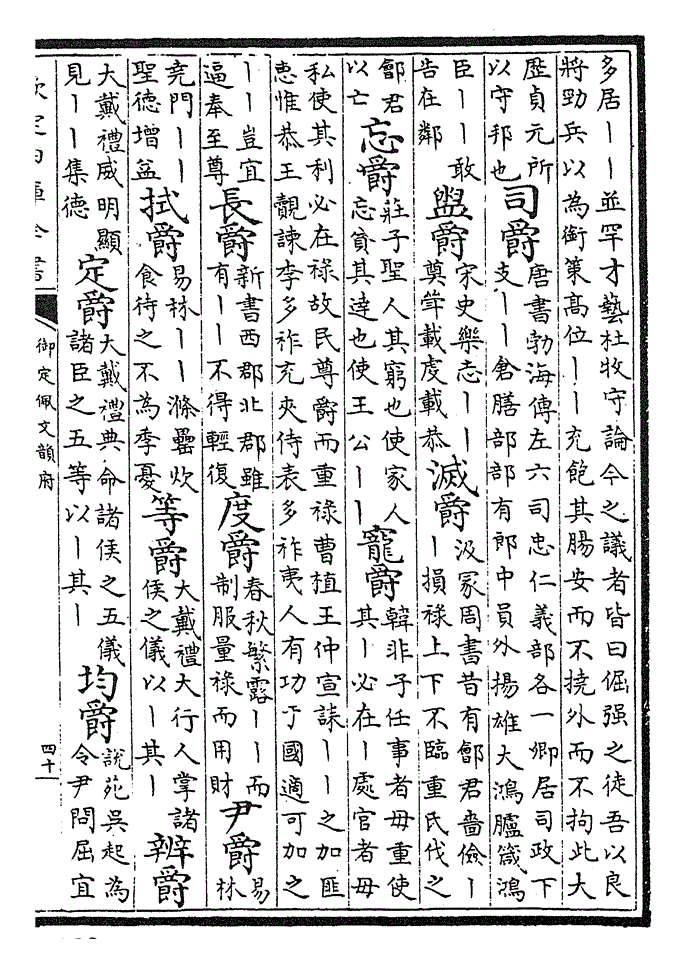 多居丨丨並罕才藝杜牧守論今之議者皆曰倔强之徒吾以良
將勁兵以為銜策高位丨丨充飽其腸安而不撓外而不拘此大
歷貞元所
以守邦也
司爵
唐書勃海傳左六司忠仁義部各一卿居司政下
支丨丨倉膳部部有郎中員外揚雄大鴻臚箴鴻
臣丨丨敢
告在鄰
盥爵
宋史樂志丨丨
奠斝載虔載恭
滅爵
汲冢周書昔有鄶君嗇儉丨
丨損祿上下不臨重氏伐之
鄶君
以亡
忘爵
莊子聖人其窮也使家人
忘貧其達也使王公丨丨
寵爵
韓非子任事者毋重使
其丨必在丨處官者毋
私使其利必在祿故民尊爵而重祿曹植王仲宣誄丨丨之加匪
惠惟恭王覿諫李多祚充夾侍表多祚夷人有功于國適可加之
丨丨豈宜
逼奉至尊
長爵
新書西郡北郡雖
有丨丨不得輕復
度爵
春秋繁露丨丨而
制服量祿而用財
尹爵
易
林
堯門丨丨
聖德增益
拭爵
易林丨丨滌罍炊
食待之不為季憂
等爵
大戴禮大行人掌諸
侯之儀以丨其丨
辨爵
大戴禮威明顯
見丨丨集德
定爵
大戴禮典命諸侯之五儀
諸臣之五等以丨其丨
均爵
說苑吳起為
令尹問屈宜
欽定四庫全書
御定佩文韻府
四十